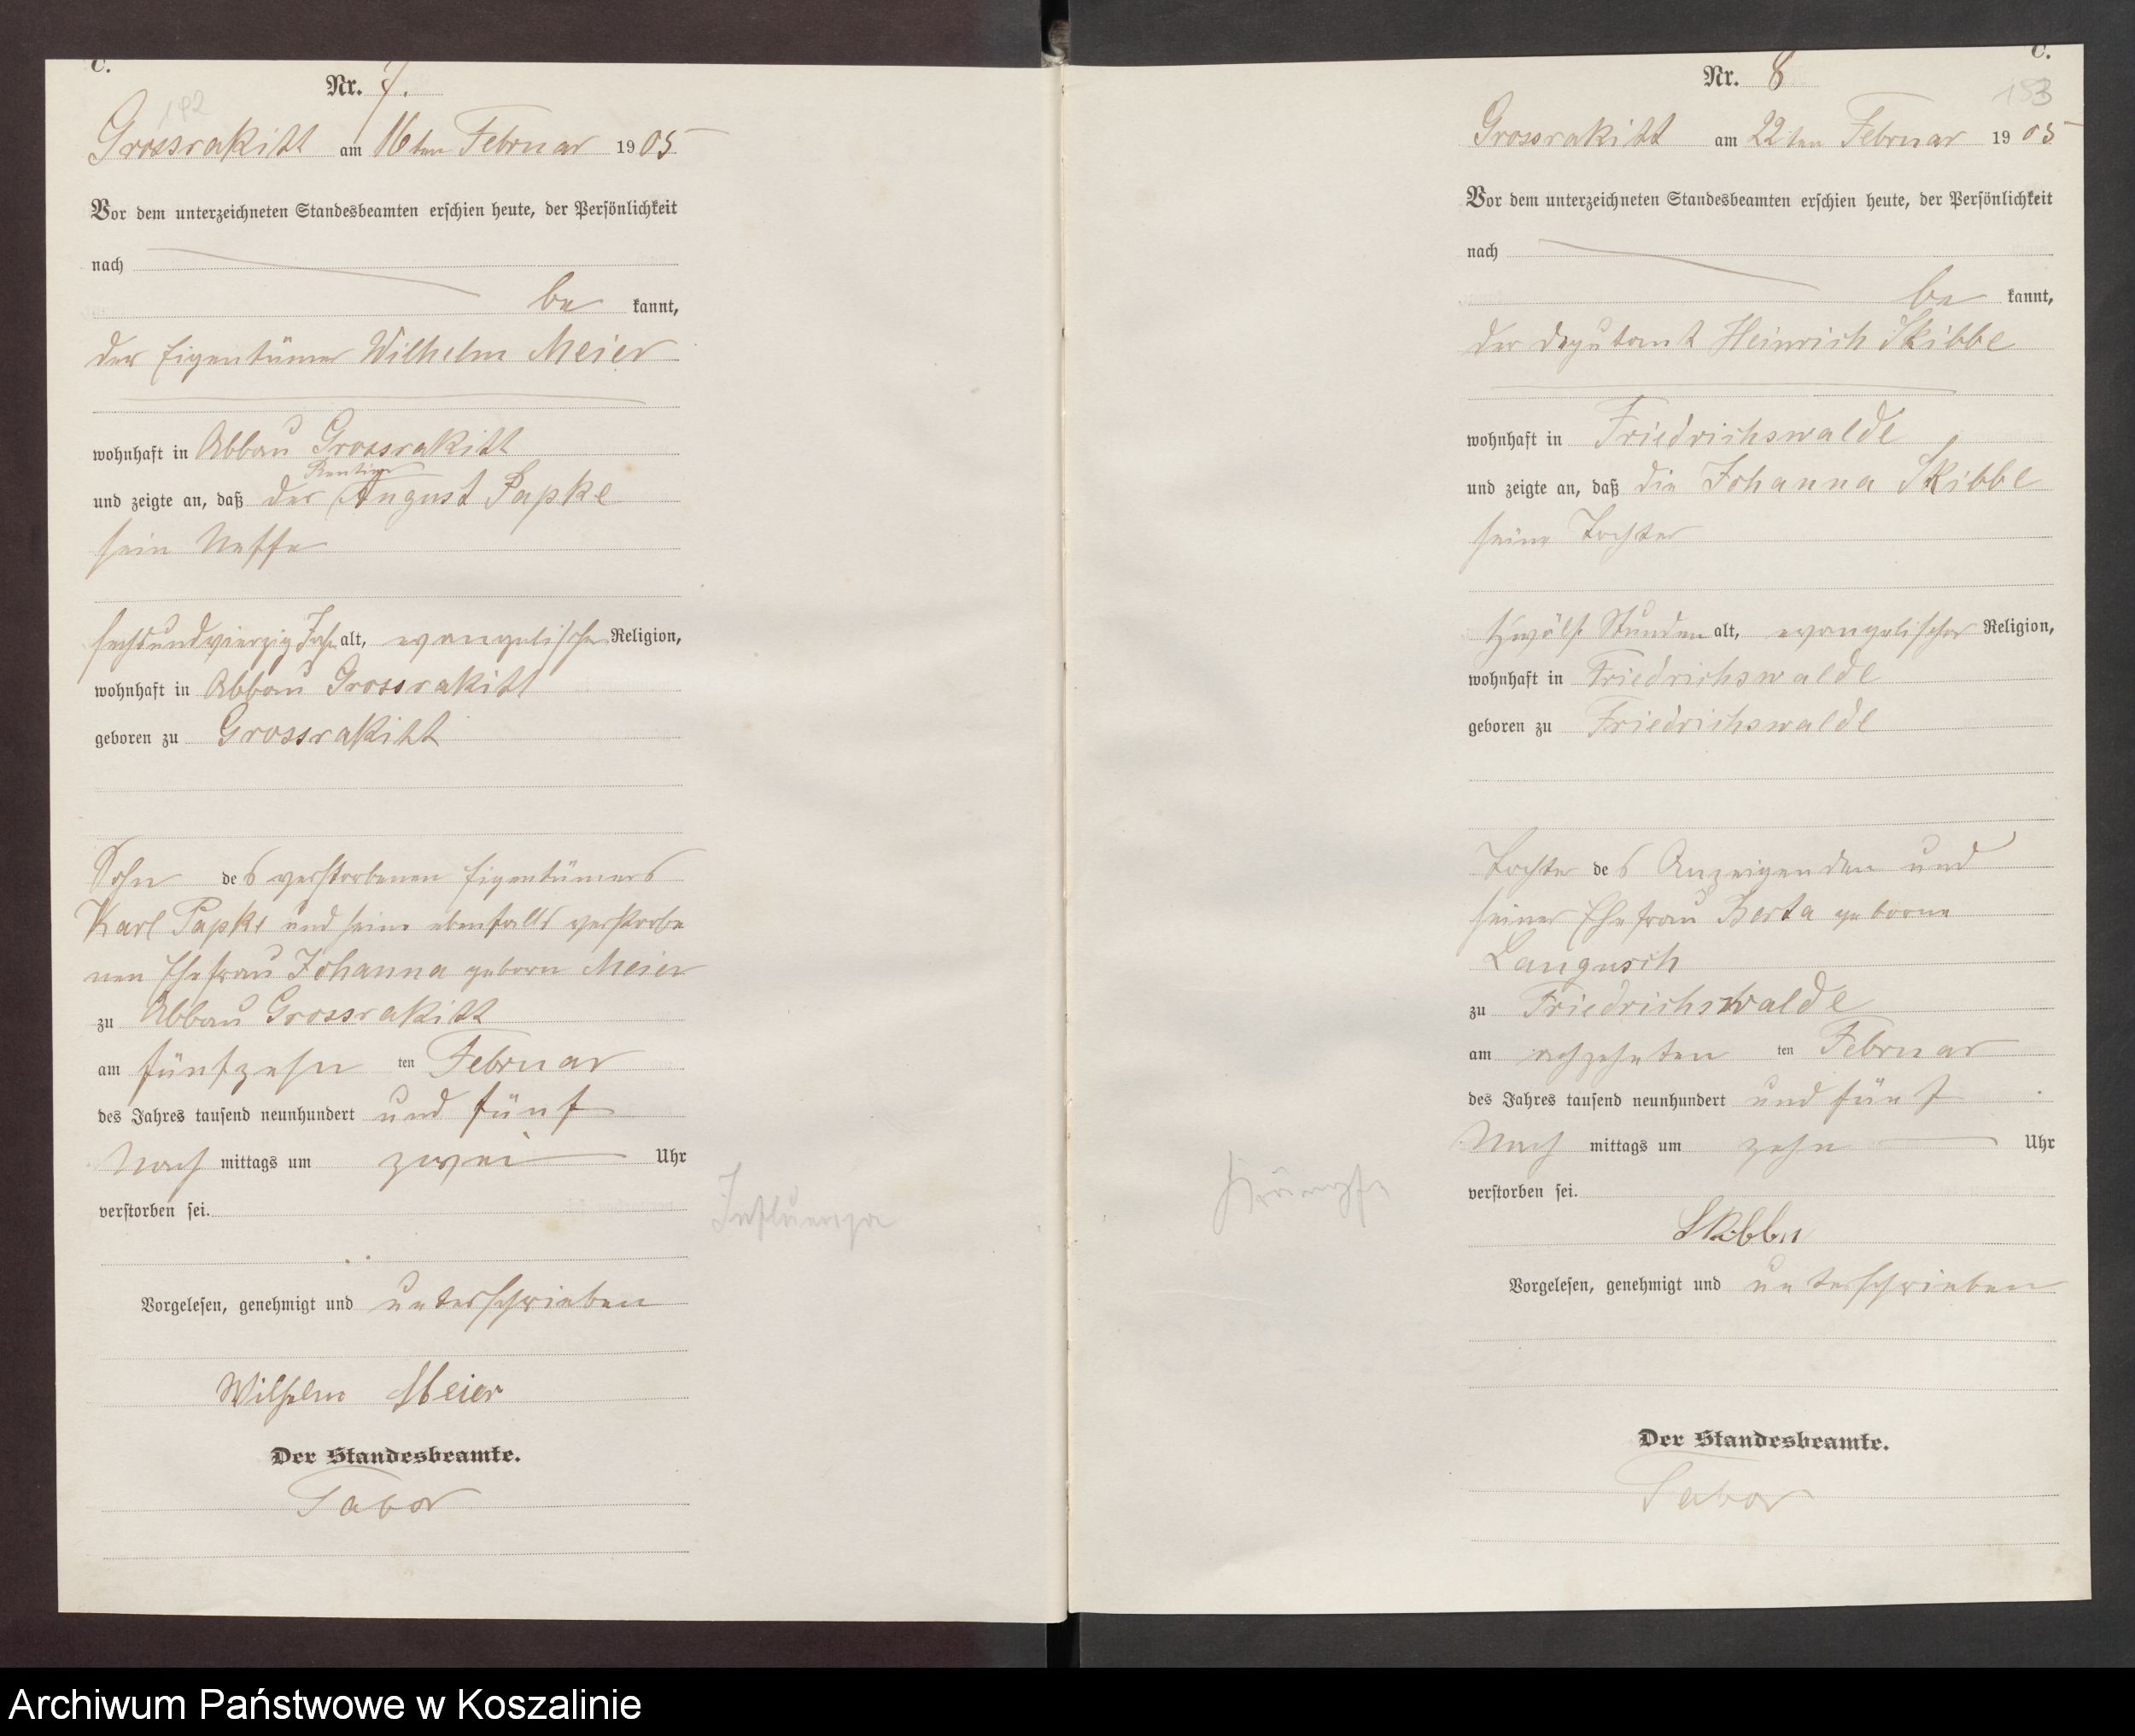 C.
Nr. 7.
192
Grossrakitt am 16ten Februar 1905
Vor dem unterzeichneten Standesbeamten erschien heute, der Persönlichkeit
nach
be kannt,
der Eigentümer Wilhelm Meier
wohnhaft in Abbau Grossrakitt
Rentier
und zeigte an, daß der August Papke
sein Neffe
sechsundvierzig Jahr alt, evangelischer Religion,
wohnhaft in Abbau Grossrakitt
geboren zu Grossrakitt
Sohn des verstorbenen Eigentümers
Karl Papke und seiner ebenfalls verstorbe
nen Ehefrau Johanna geborn Meier
zu Abbau Grossrakitt
am fünfzehn ten Februar
des Jahres tausend neunhundert und fünf
Nach mittags um zwei Uhr
verstorben sei.
Influenza
Vorgelesen, genehmigt und unterschrieben
Wilhelm Meier
Der Standesbeamte.
Tabor
C.
Nr. 8
193
Grossrakitt am 22ten Februar 1905
Vor dem unterzeichneten Standesbeamten erschien heute, der Persönlichkeit
nach
be kannt,
der Deputant Heinrich Skibbe
wohnhaft in Friedrichswalde
und zeigte an, daß die Johanna Skibbe
seine Tochter
Zwölf Stunden alt, evangelischer Religion,
wohnhaft in Friedrichswalde
geboren zu Friedrichswalde
Tochter des Anzeigenden und
seiner Ehefrau Berta geborne
Langusch
zu Friedrichswalde
am achzehnten ten Februar
des Jahres tausend neunhundert und fünf
Nach mittags um zehn Uhr
verstorben sei.
Krämpfe
Skibbe
Vorgelesen, genehmigt und unterschrieben
Der Standesbeamte.
Tabor
Archiwum Państwowe w Koszalinie